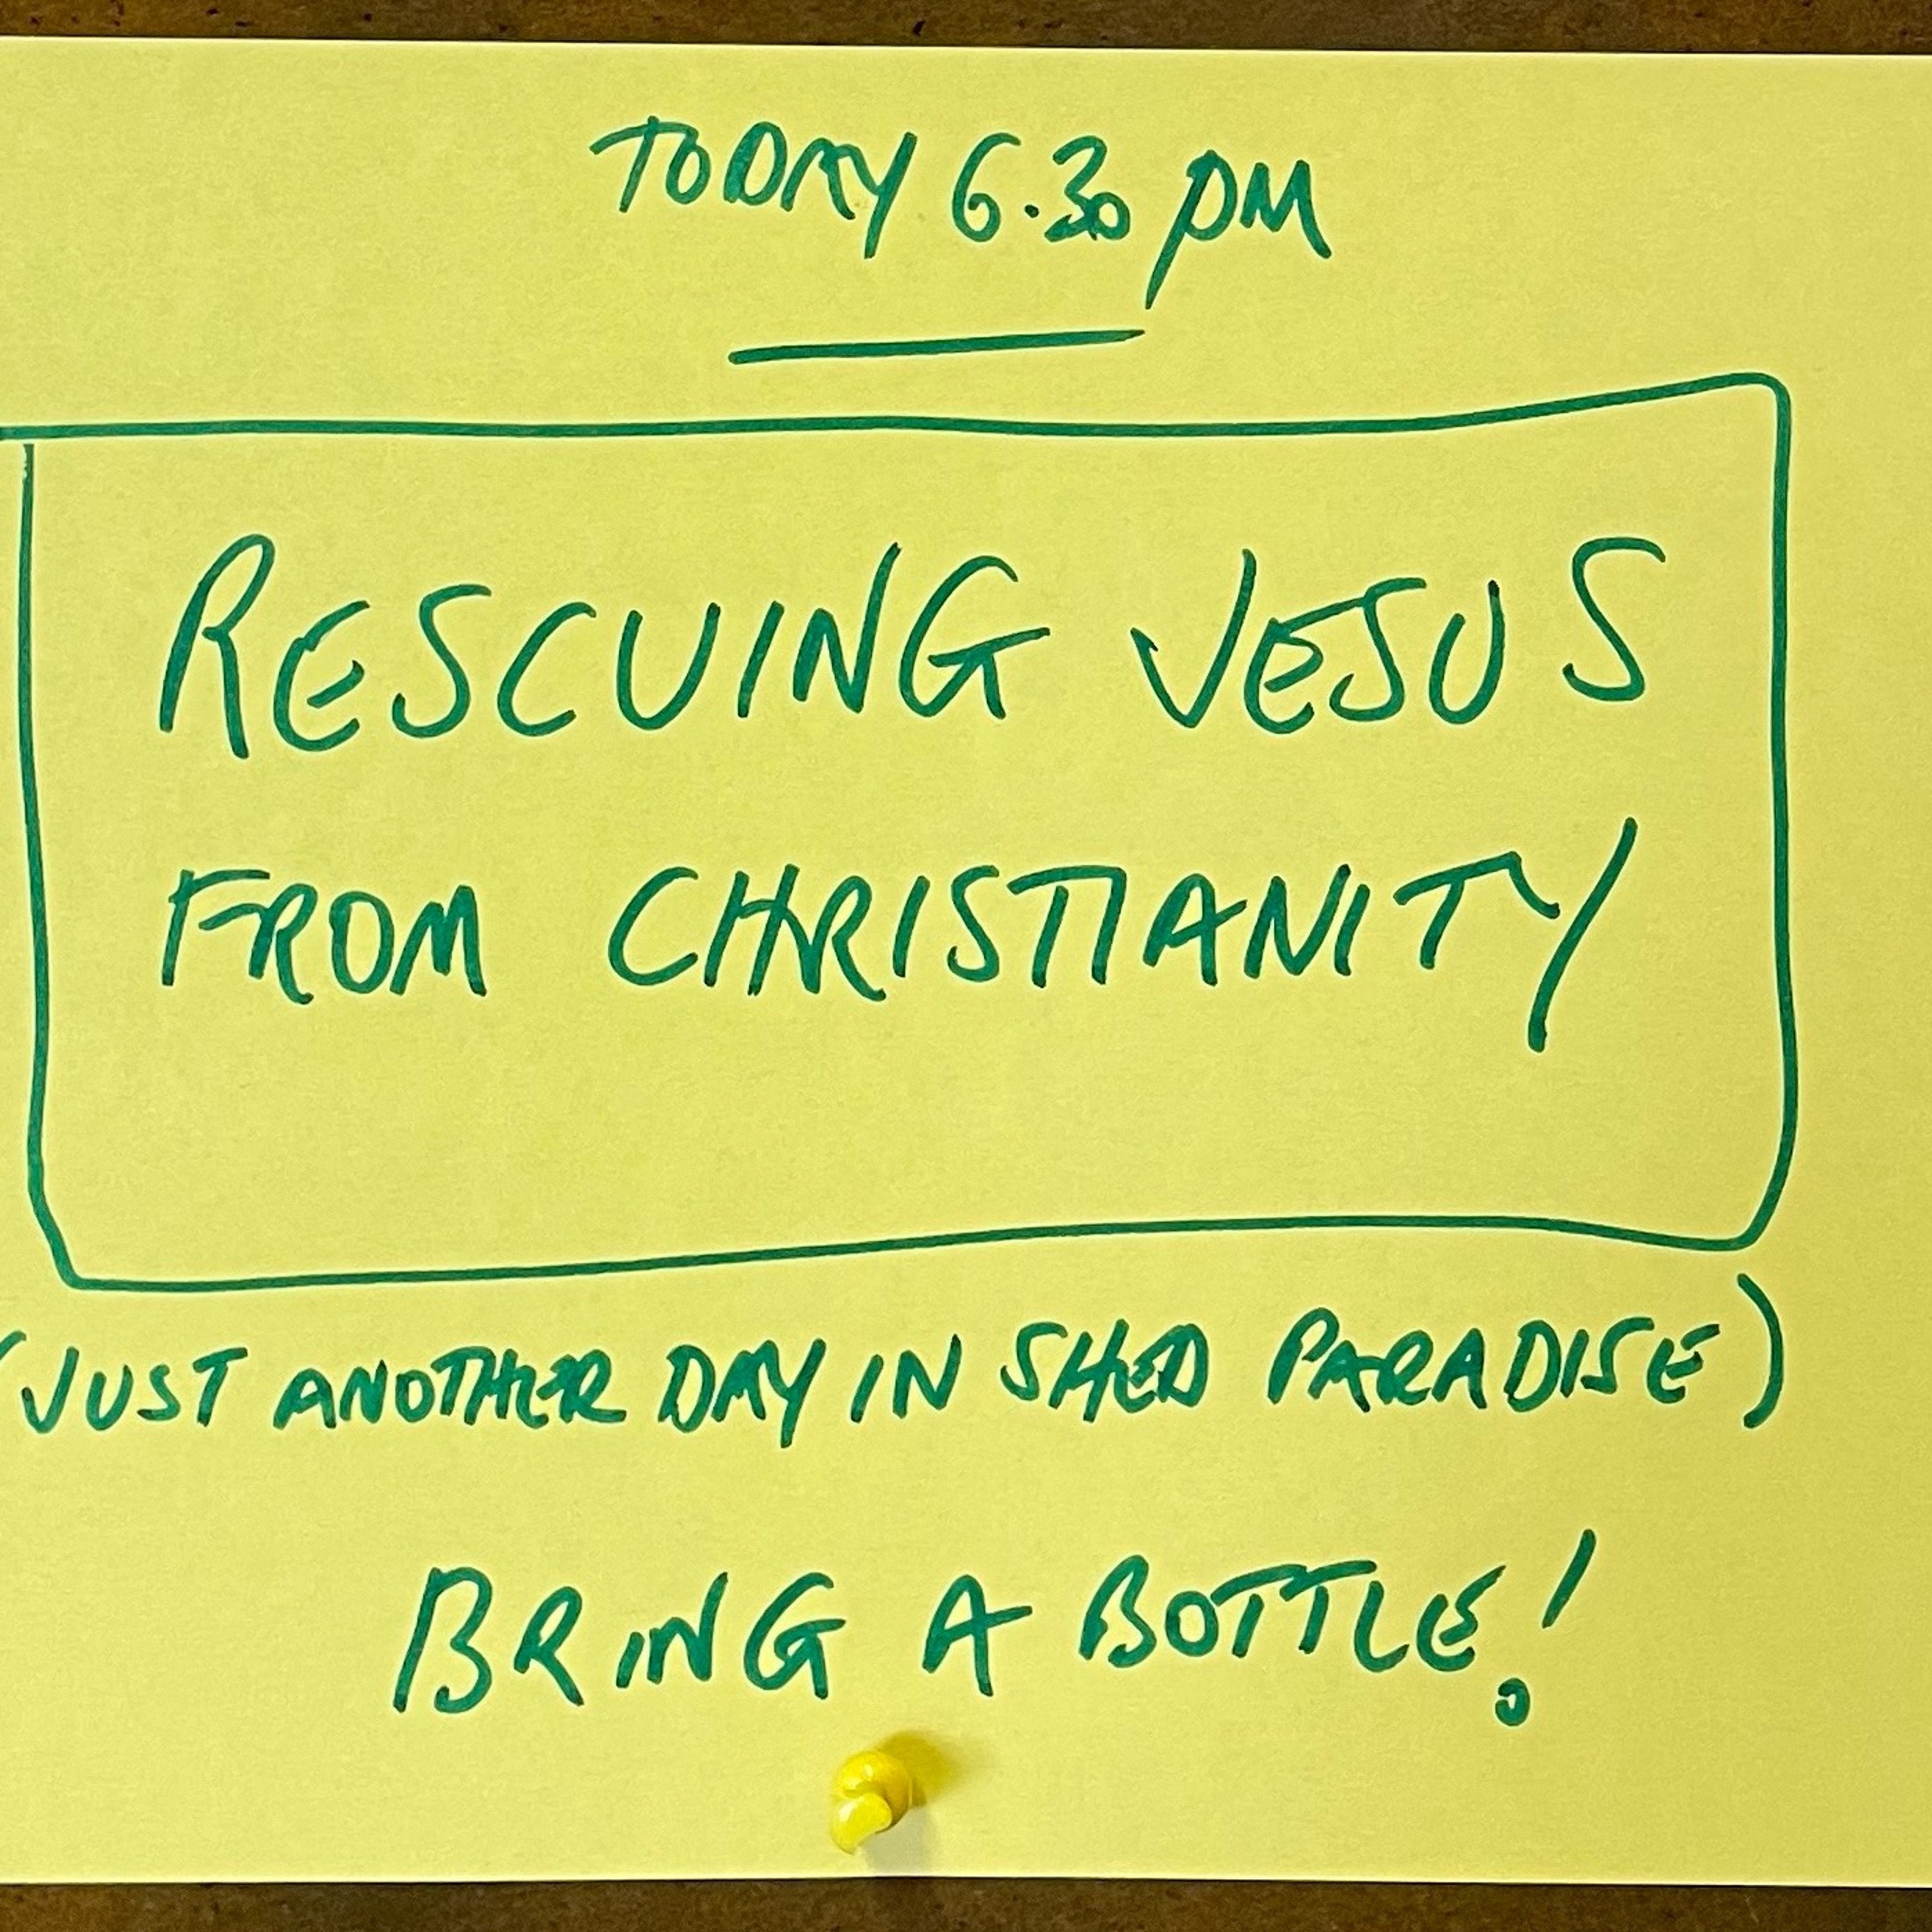 TODAY 6.30 PM
RESCUING JESUS
FROM CHRISTIANITY
(JUST ANOTHER DAY IN SHED PARADISE)
BRING A BOTTLE!